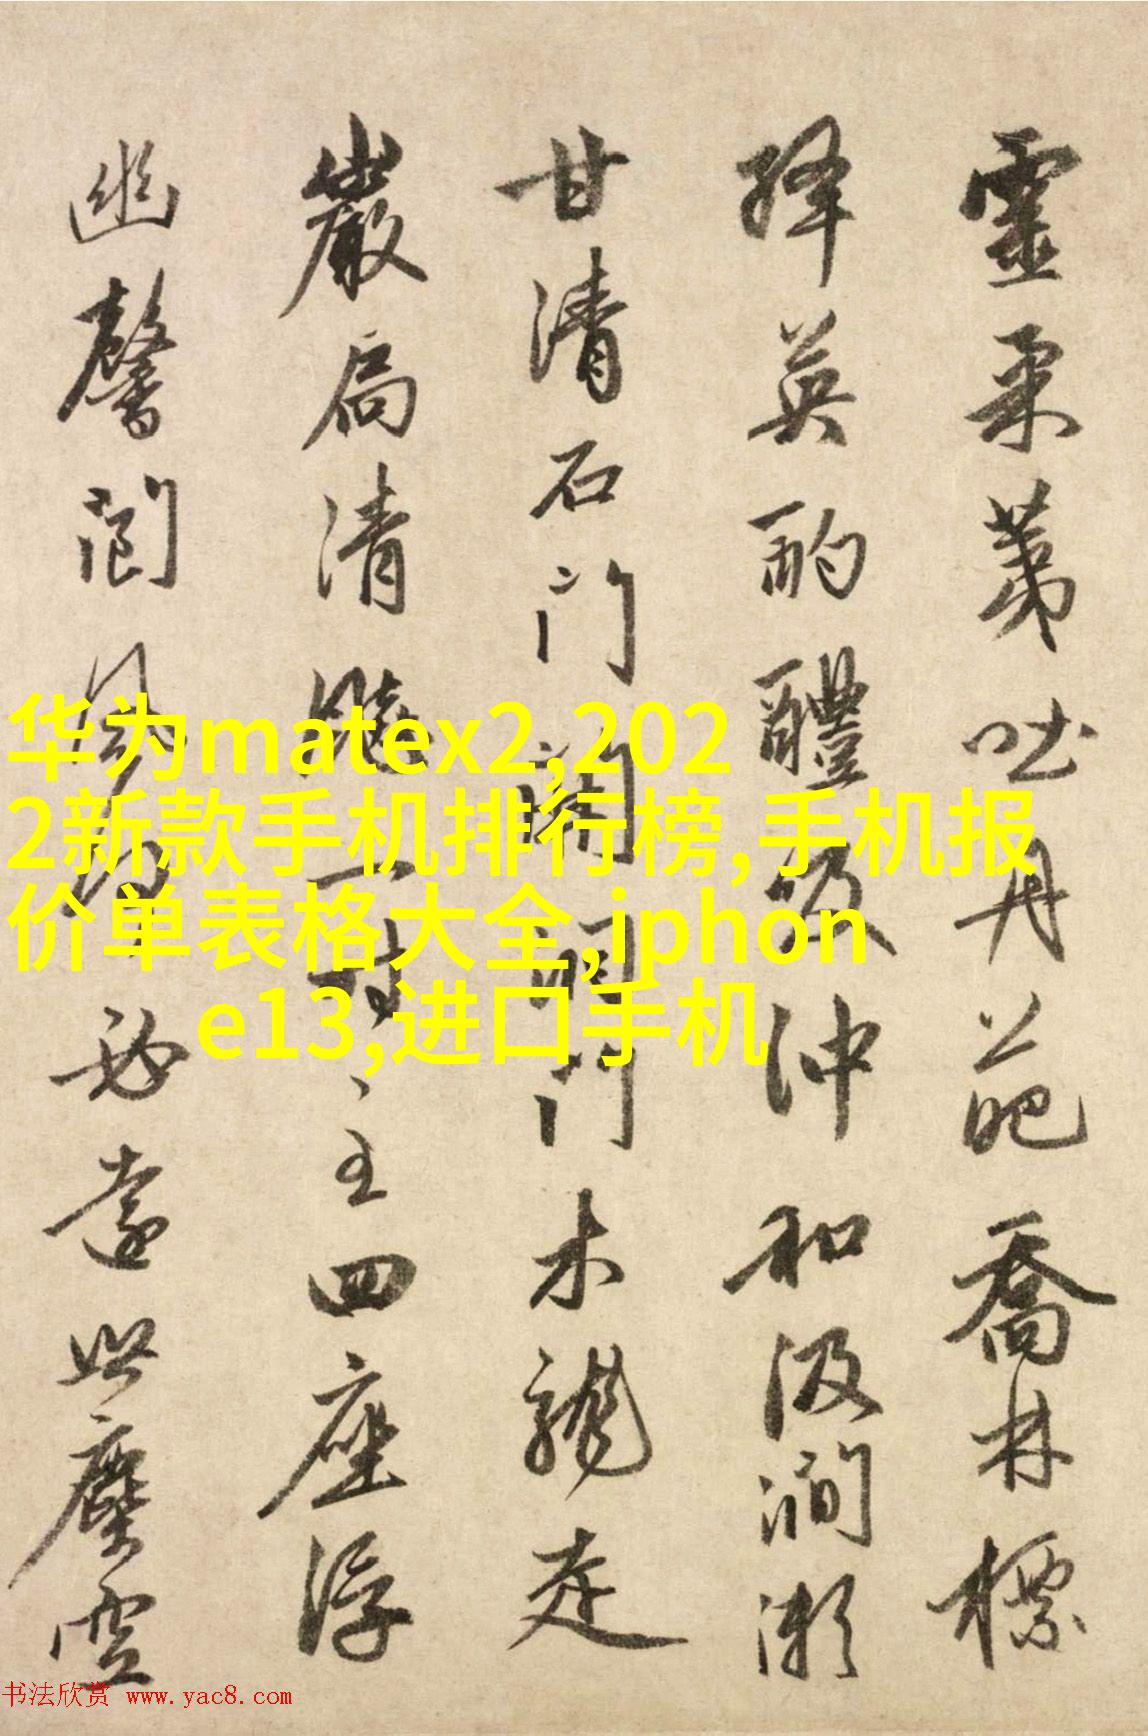 靈柔荑吐丹葩喬林標
絳英酌醴吸沖和汲澗瀨
甘清石门門木龍走
巖扃清一主四座浮
幽馨閬風遠塵
华为matex2,202
2新款手机排行榜,手机报
价单表格大全,iphon
e13,进口手机
书法欣赏 www.yac8.com